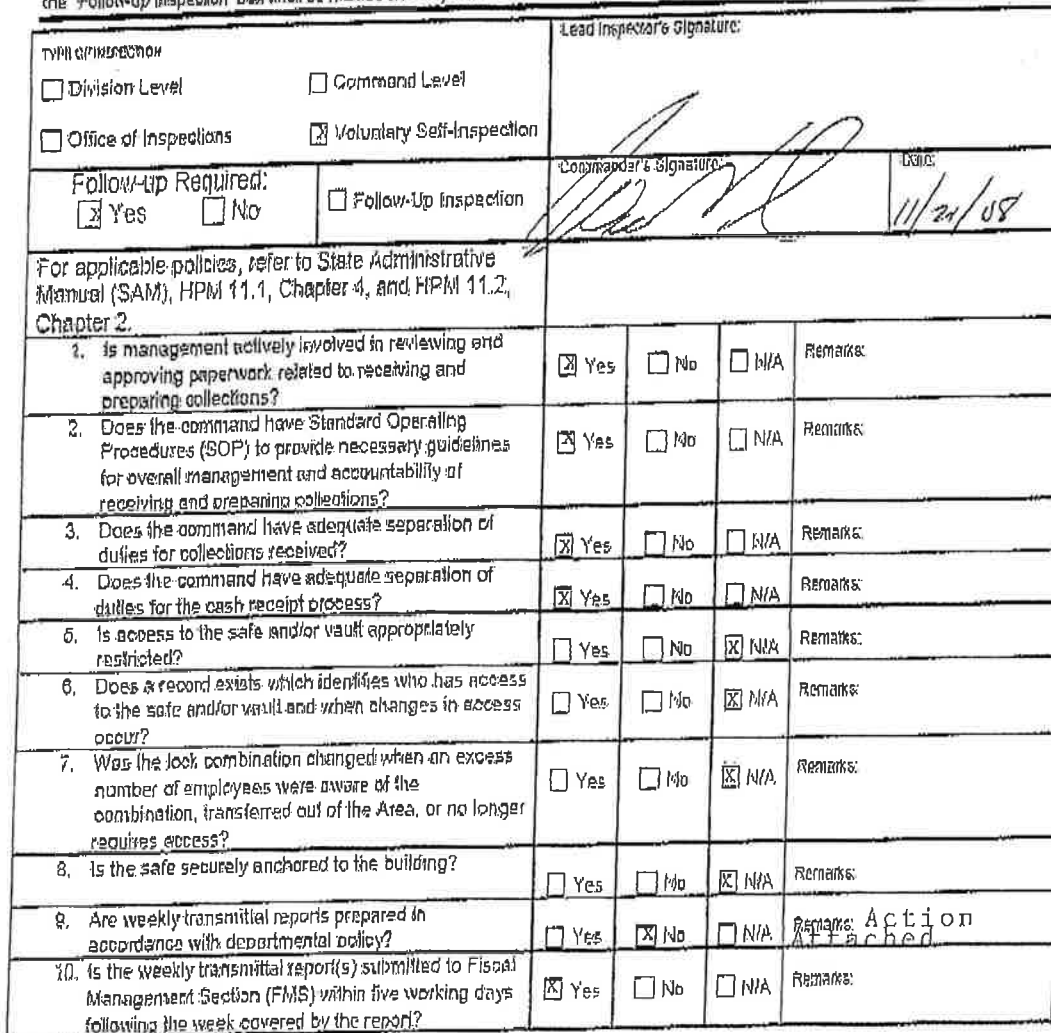 the "Follow-up Inspection"
TYPE OF INSPECTION
☐ Division Level ☐ Command Level
☐ Office of Inspections ☒ Voluntary Self-Inspection
Lead Inspector's Signature:
Follow-up Required:
☒ Yes ☐ No
☐ Follow-Up Inspection
Commander's Signature:
Date:
For applicable policies, refer to State Administrative
Manual (SAM), HPM 11.1, Chapter 4, and HPM 11.2,
Chapter 2.
1. Is management actively involved in reviewing and
approving paperwork related to receiving and
preparing collections?
☒ Yes ☐ No ☐ N/A Remarks:
2. Does the command have Standard Operating
Procedures (SOP) to provide necessary guidelines
for overall management and accountability of
receiving and preparing collections?
☒ Yes ☐ No ☐ N/A Remarks:
3. Does the command have adequate separation of
duties for collections received?
☒ Yes ☐ No ☐ N/A Remarks:
4. Does the command have adequate separation of
duties for the cash receipt process?
☒ Yes ☐ No ☐ N/A Remarks:
5. Is access to the safe and/or vault appropriately
restricted?
☐ Yes ☐ No ☒ N/A Remarks:
6. Does a record exists which identifies who has access
to the safe and/or vault and when changes in access
occur?
☐ Yes ☐ No ☒ N/A Remarks:
7. Was the lock combination changed when an excess
number of employees were aware of the
combination, transferred out of the Area, or no longer
requires access?
☐ Yes ☐ No ☒ N/A Remarks:
8. Is the safe securely anchored to the building?
☐ Yes ☐ No ☒ N/A Remarks:
9. Are weekly transmittal reports prepared in
accordance with departmental policy?
☐ Yes ☒ No ☐ N/A Remarks: Action
Attached
10. Is the weekly transmittal report(s) submitted to Fiscal
Management Section (FMS) within five working days
following the week covered by the report?
☒ Yes ☐ No ☐ N/A Remarks: